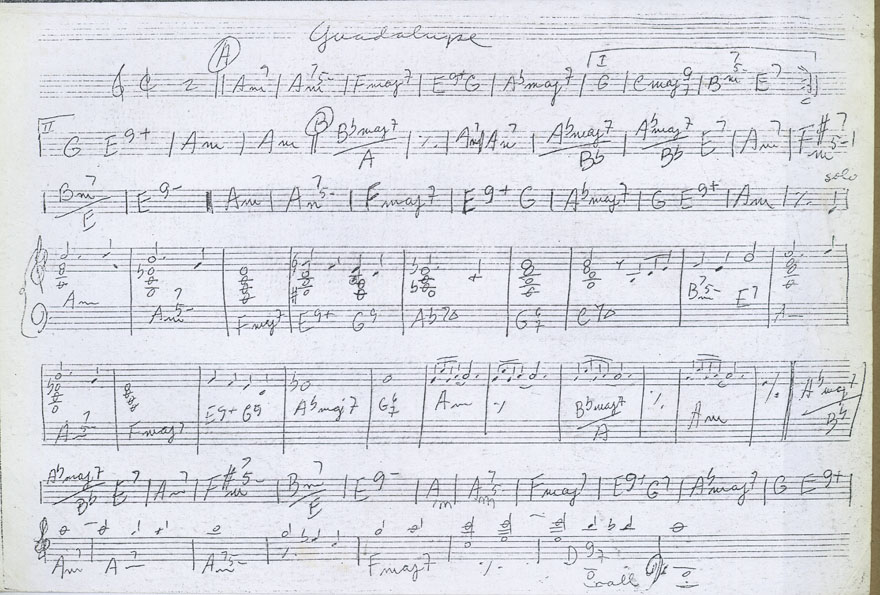 Guadalupe
A
Am7 | Am7 5- | Fmaj7 | E9+ G | Abmaj7 | I G | Cmaj9 7 | Bm7 5- E7
II G E9+ | Am | Am | B Bbmaj7/A | ٪ | Am7 | Am7 | Abmaj7/Bb | Abmaj7/Bb E7 | Am7 | F#m7 5-
Bm7/E | E9- | Am | Am7 5- | Fmaj7 | E9+ G | Abmaj7 | G E9+ | Am | ٪ solo
Am | Am7 5- | Fmaj7 | E9+ G9 | | | | Bm7 5- E7 | A
| Fmaj7 | E9+ G9 | Abmaj7 | G6 7 | Am | ٪ | Bbmaj7/A | ٪ | Am | ٪ | Abmaj7/Bb
Abmaj7/Bb E7 | Am7 | F#m7 5- | Bm7/E | E9- | Am | Am7 5- | Fmaj7 | E9+ G7 | Abmaj7 | G E9+
Am7 | A | Am7 5- | ٪ | Fmaj7 | ٪ | D 9 7